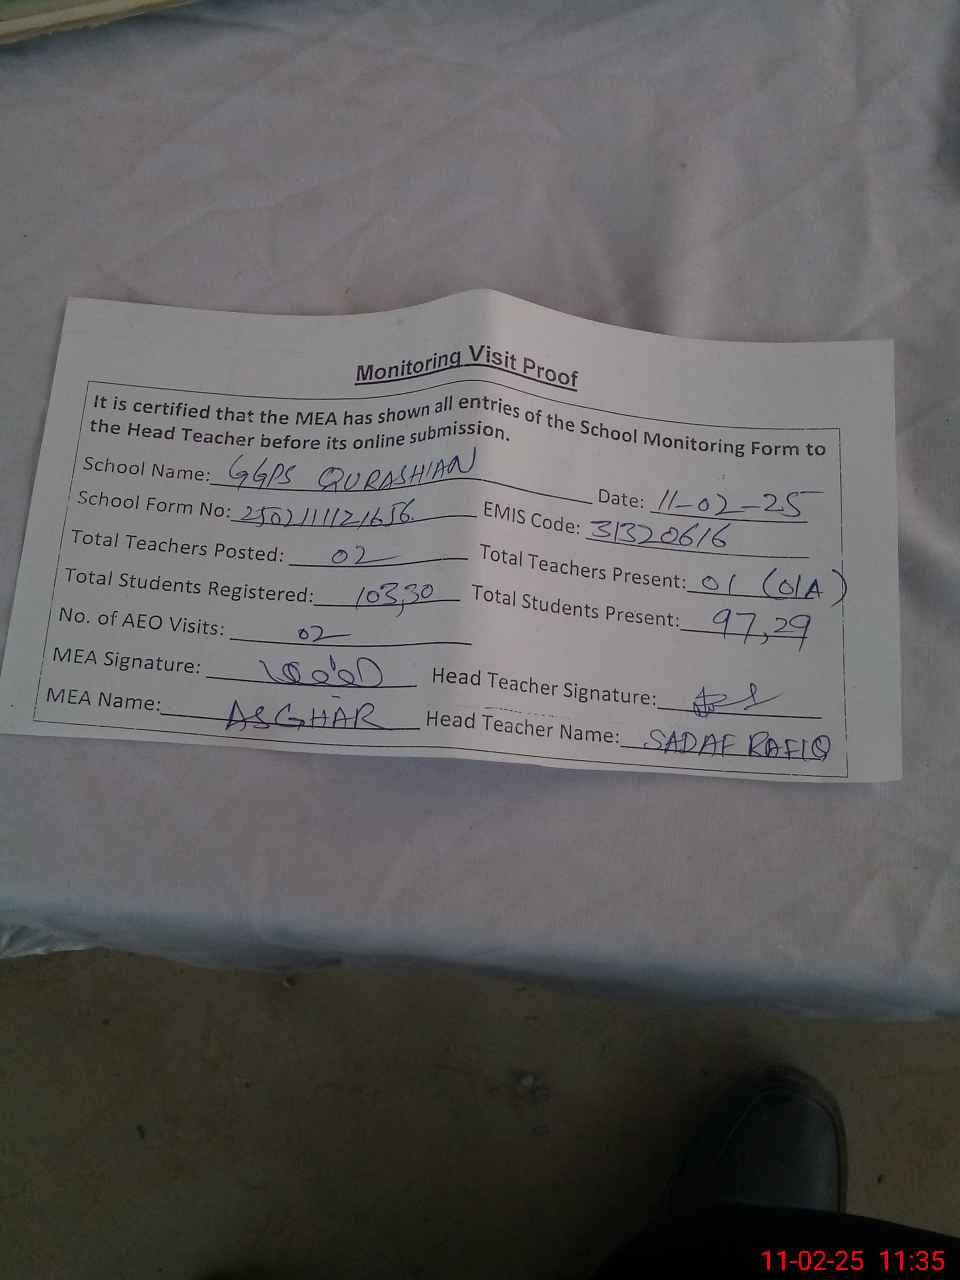 Monitoring Visit Proof
It is certified that the MEA has shown all entries of the School Monitoring Form to
the Head Teacher before its online submission.
School Name: GGPS QURASHIAN Date: 11-02-25
School Form No: 2502111121656 EMIS Code: 31320616
Total Teachers Posted: 02 Total Teachers Present: 01 (01A)
Total Students Registered: 103,30 Total Students Present: 97,29
No. of AEO Visits: 02
MEA Signature: Head Teacher Signature:
MEA Name: ASGHAR Head Teacher Name: SADAF RAFIQ
11-02-25 11:35